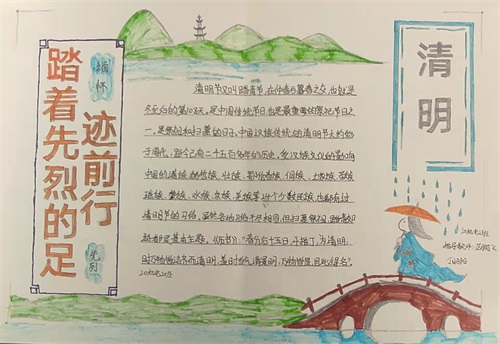 缅怀
踏着先烈的足
迹前行
先烈
清明节又叫踏青节，在仲春与暮春之交，也就是
冬至后的第108天，是中国传统节日，也是最重要的祭祀节日之
一，是祭祖和扫墓的日子，中国汉族传统的清明节大约始
于周代，距今已有二千五百多年的历史，受汉族文化的影响
中国的满族、赫哲族、壮族、鄂伦春族、侗族、土家族、苗族
瑶族、黎族、水族、京族、羌族等24个少数民族，也都有过
清明节的习俗，虽然各地习俗不尽相同，但扫墓祭祖、踏青郊
游都是基本主题，《历书》：“春分后十五日，斗指丁，为清明，
时万物皆洁齐而清明，盖时当气清景明，万物皆显，因此得名”。
清明